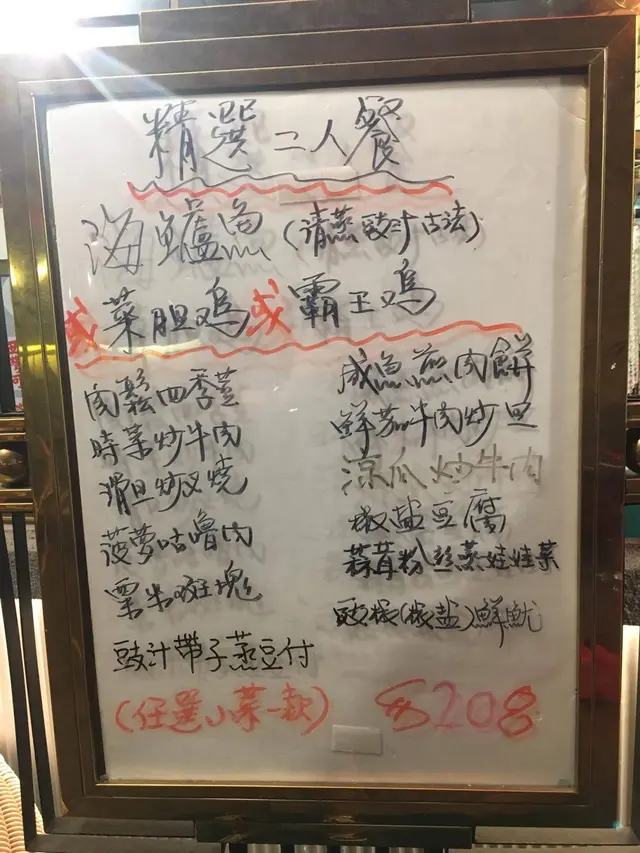 精選二人餐
海鱸魚(清蒸豉汁古法)
或菜胆鸡或霸王鸡
肉鬆四季荳
時菜炒牛肉
滑旦炒叉燒
菠萝咕嚕肉
粟米斑塊
豉汁帶子蒸豆付
(任選小菜一款)
咸魚蒸肉餅
鮮茄牛肉炒旦
涼瓜炒牛肉
椒盐豆腐
蒜茸粉丝蒸娃娃菜
豉椒(椒盐)鮮魷
$208